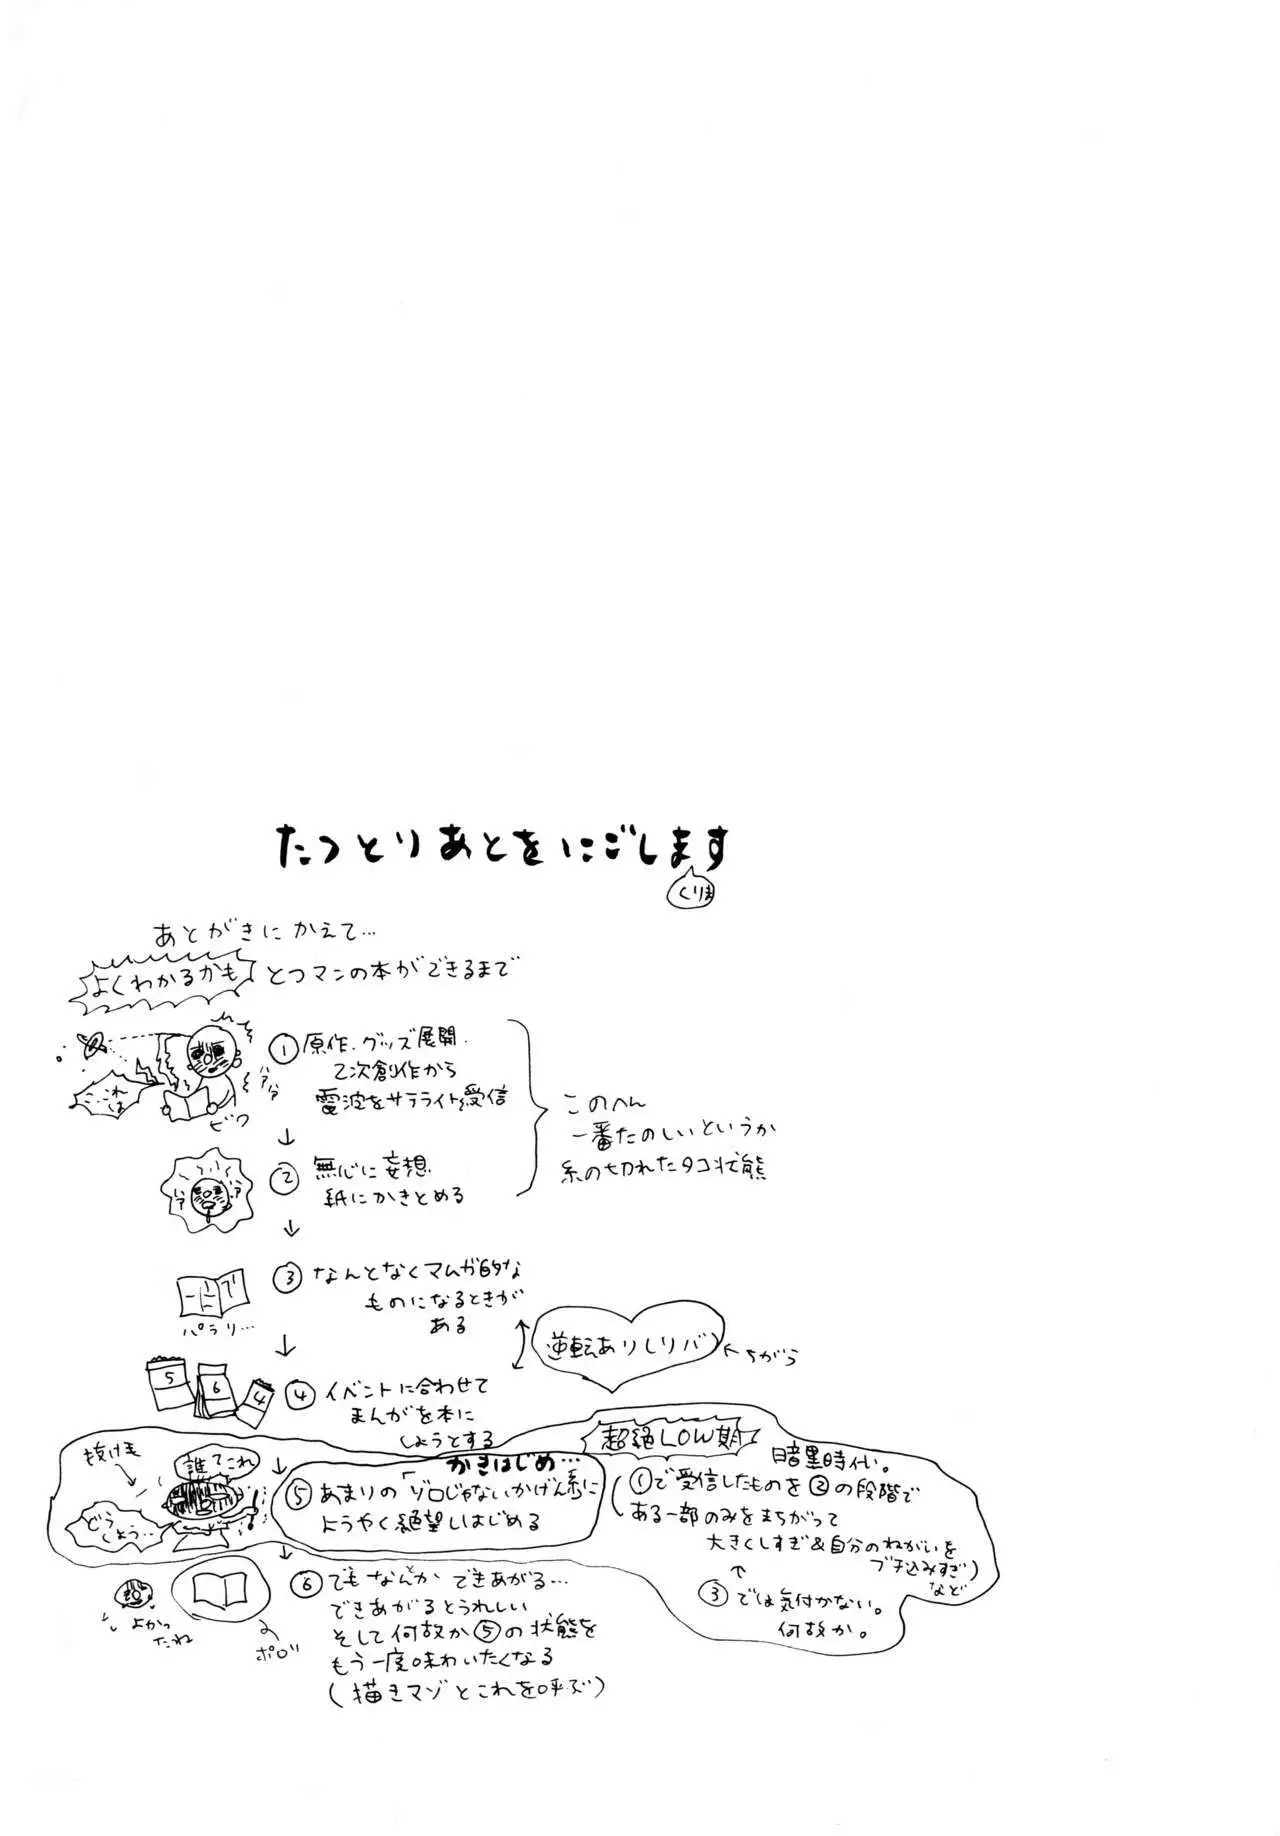 たつとりあとをにごします
くりま
あとがきにかえて…
よくわかるかも
とつマンの本ができるまで
これは
ビク
ハァハァ
① 原作、グッズ展開、
乙次創作から
電波をサテライト受信
↓
② 無心に妄想、
紙にかきとめる
このへん
一番たのしいというか
糸の切れたタコ状態
↓
③ なんとなくマムガ的な
ものになるときが
ある
パラリ…
↓
逆転ありしリバ
←ちがう
5
6
4
④ イベントに合わせて
まんがを本に
しようとする
↓
抜け毛
誰てこれ
どうしよう…
かきはじめ…
⑤ あまりの「ゾロじゃないかげん系」に
ようやく絶望しはじめる
超絶LOW期
暗黒時代。
(①で受信したものを②の段階で
ある一部のみをまちがって
大きくしすぎ&自分のねがいを
ブチ込みすぎ)
など
↑
③では気付かない。
何故か。
↓
⑥ でもなんとかできあがる…
できあがるとうれしい
そして何故か⑤の状態を
もう一度味わいたくなる
(描きマゾとこれを呼ぶ)
よかったね
ポロリ